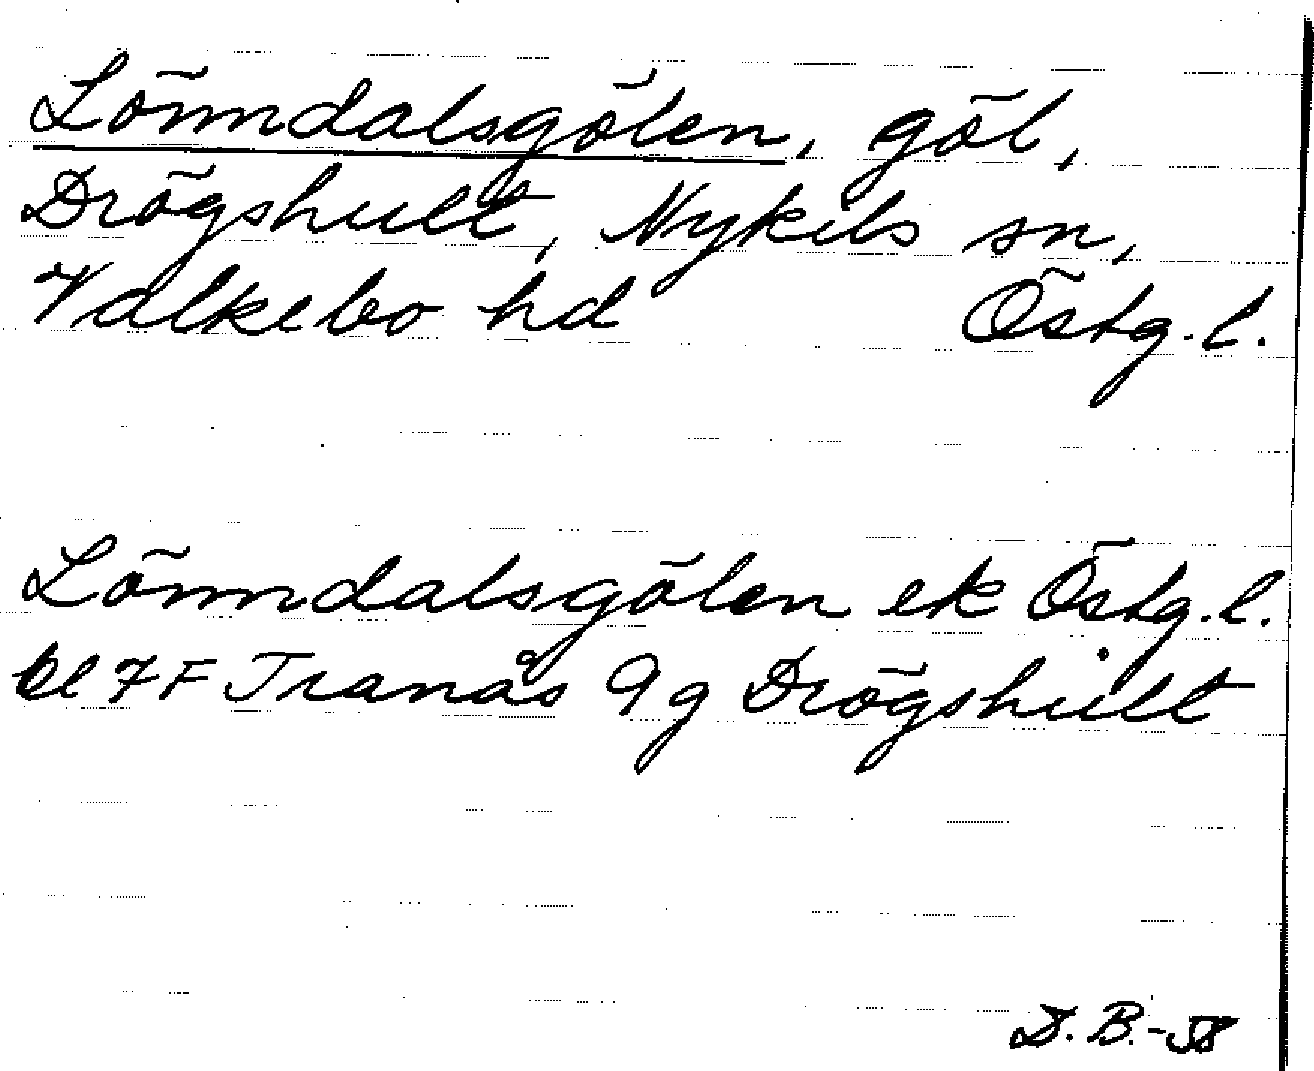 Lönndalsgölen, göl,
Drögshult, Nykils sn,
Valkebo hd Östg. l.
Lönndalsgölen ek Östg. l.
bl 7F Tranås 9g Drögshult
D. B. -58